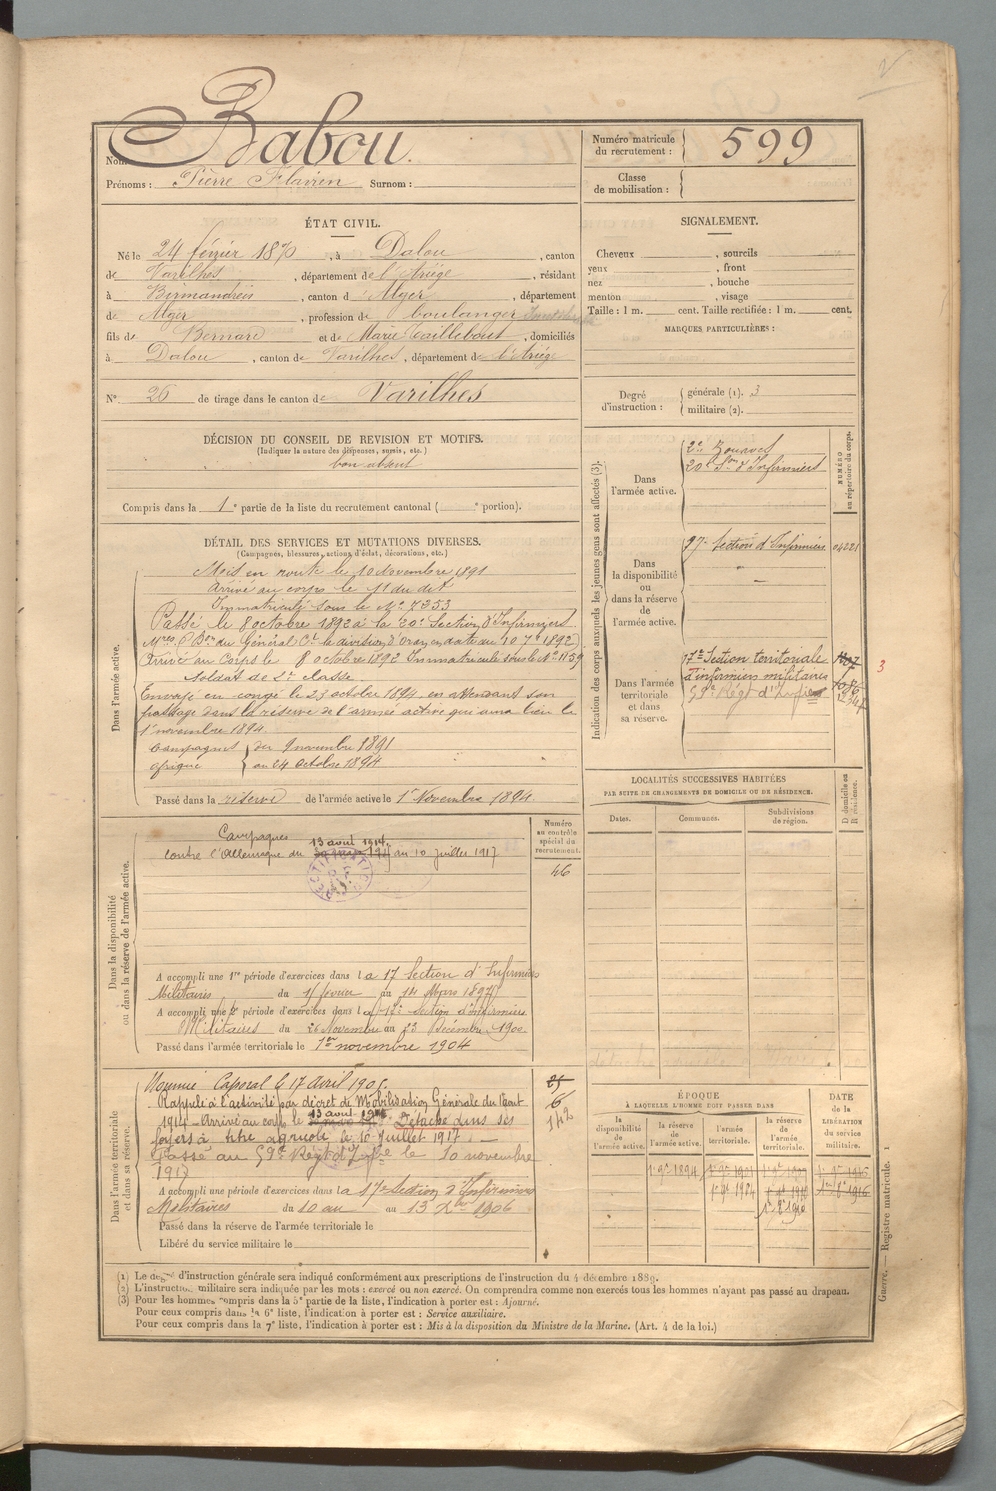 Nom: Babou.
Prénoms : Pierre Flavien Surnom :
Numéro matricule du recrutement : 599
Classe de mobilisation :
ÉTAT CIVIL.
Né le 24 février 1870, à Dalou, canton
de Varilhes, département de l'Ariège, résidant
à Birmandreis, canton d'Alger, département
de Alger, profession de boulanger
fils de Bernard et de Marie Taillebout, domiciliés
à Dalou, canton de Varilhes, département de l'Ariège
N° 26 de tirage dans le canton de Varilhes
SIGNALEMENT.
Cheveux , sourcils
yeux , front
nez , bouche
menton , visage
Taille : 1 m. cent. Taille rectifiée : 1 m. cent.
MARQUES PARTICULIÈRES :
Degré d'instruction : générale (1). 3
militaire (2).
DÉCISION DU CONSEIL DE REVISION ET MOTIFS.
(Indiquer la nature des dispenses, sursis, etc.)
bon absent
Compris dans la 1e partie de la liste du recrutement cantonal ( e portion).
DÉTAIL DES SERVICES ET MUTATIONS DIVERSES.
(Campagnes, blessures, actions d'éclat, décorations, etc.)
Dans l'armée active.
Mis en route le 10 Novembre 1891
Arrivé au corps le 11 du dit
Immatriculé sous le N° 7253
Passé le 8 octobre 1892 à la 20e Section d'Infirmiers
du Général Ct la division d'Oran en date du 10 7e 1892)
Arrivé au Corps le 8 octobre 1892 Immatriculé sous le N° 1159
Soldat de 2e classe.
Envoyé en congé le 23 octobre 1894, en attendant son
passage dans la réserve de l'armée active qui aura lieu le
1e novembre 1894.
Campagnes Afrique du 9 novembre 1891
au 24 octobre 1894
Passé dans la réserve de l'armée active le 1e Novembre 1894.
Indication des corps auxquels les jeunes gens sont affectés (3).
NUMÉRO au répertoire du corps.
Dans l'armée active.
2e Zouaves
20e Son d'Infirmiers
Dans la disponibilité ou dans la réserve de l'armée active.
17e Section d'Infirmiers 04221
Dans l'armée territoriale et dans sa réserve.
17e Section territoriale
d'infirmiers militaires
59e Régt d'Infie
3
LOCALITÉS SUCCESSIVES HABITÉES
PAR SUITE DE CHANGEMENTS DE DOMICILE OU DE RÉSIDENCE.
Dates. Communes. Subdivisions de région. D domicile ou R résidence.
Dans la disponibilité ou dans la réserve de l'armée active.
Numéro au contrôle spécial du recrutement.
46
Campagnes
13 aout 1914.
contre l'Allemagne du au 10 Juillet 1917
A accompli une 1re période d'exercices dans la 17 Section d'Infirmiers
Militaires du 1 février au 14 Mars 1897
A accompli une 2e période d'exercices dans la 17e Section d'infirmiers
Militaires du 26 Novembre au 23 Décembre 1900.
Passé dans l'armée territoriale le 1er novembre 1904
Dans l'armée territoriale et dans sa réserve.
Nommé Caporal le 17 Avril 1905.
Rappelé à l'activité par décret de Mobilisation Générale du 1er aout
1914 – Arrivé au corps le 13 aout 1914 Détaché dans ses
foyers à titre agricole le 10 Juillet 1917 –
Passé au 59e Régt d'Infie le 10 novembre
1917
A accompli une période d'exercices dans la 17e Section d'Infirmiers
Militaires du 10 au 13 1906
Passé dans la réserve de l'armée territoriale le
Libéré du service militaire le
25
6
142
ÉPOQUE
À LAQUELLE L'HOMME DOIT PASSER DANS
DATE de la LIBÉRATION du service militaire.
la disponibilité de l'armée active. la réserve de l'armée active. l'armée territoriale. la réserve de l'armée territoriale.
1e 9e 1894
1e 9e 1904
(1) Le degré d'instruction générale sera indiqué conformément aux prescriptions de l'instruction du 4 décembre 1889.
(2) L'instruction militaire sera indiquée par les mots : exercé ou non exercé. On comprendra comme non exercés tous les hommes n'ayant pas passé au drapeau.
(3) Pour les hommes compris dans la 5e partie de la liste, l'indication à porter est : Ajourné.
Pour ceux compris dans la 6e liste, l'indication à porter est : Service auxiliaire.
Pour ceux compris dans la 7e liste, l'indication à porter est : Mis à la disposition du Ministre de la Marine. (Art. 4 de la loi.)
Guerre. — Registre matricule. 1